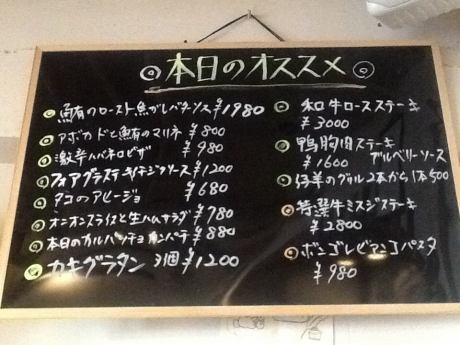 本日のオススメ
鮪のロースト魚ガレバターソース ¥1980
アボカドと鮪のマリネ ¥800
激辛ハバネロピザ ¥980
フォアグラステーキ ソース ¥1200
タコのアヒージョ ¥680
オニオンスライスと生ハムサラダ ¥780
本日のカルパッチョ ¥880
カキグラタン 3個 ¥1200
和牛ロースステーキ
¥3000
鴨胸肉ステーキ
¥1600 ブルベリーソース
仔羊のグリル2本から1本500
特選牛ミスジステーキ
¥2800
ボンゴレビアンコパスタ
¥980